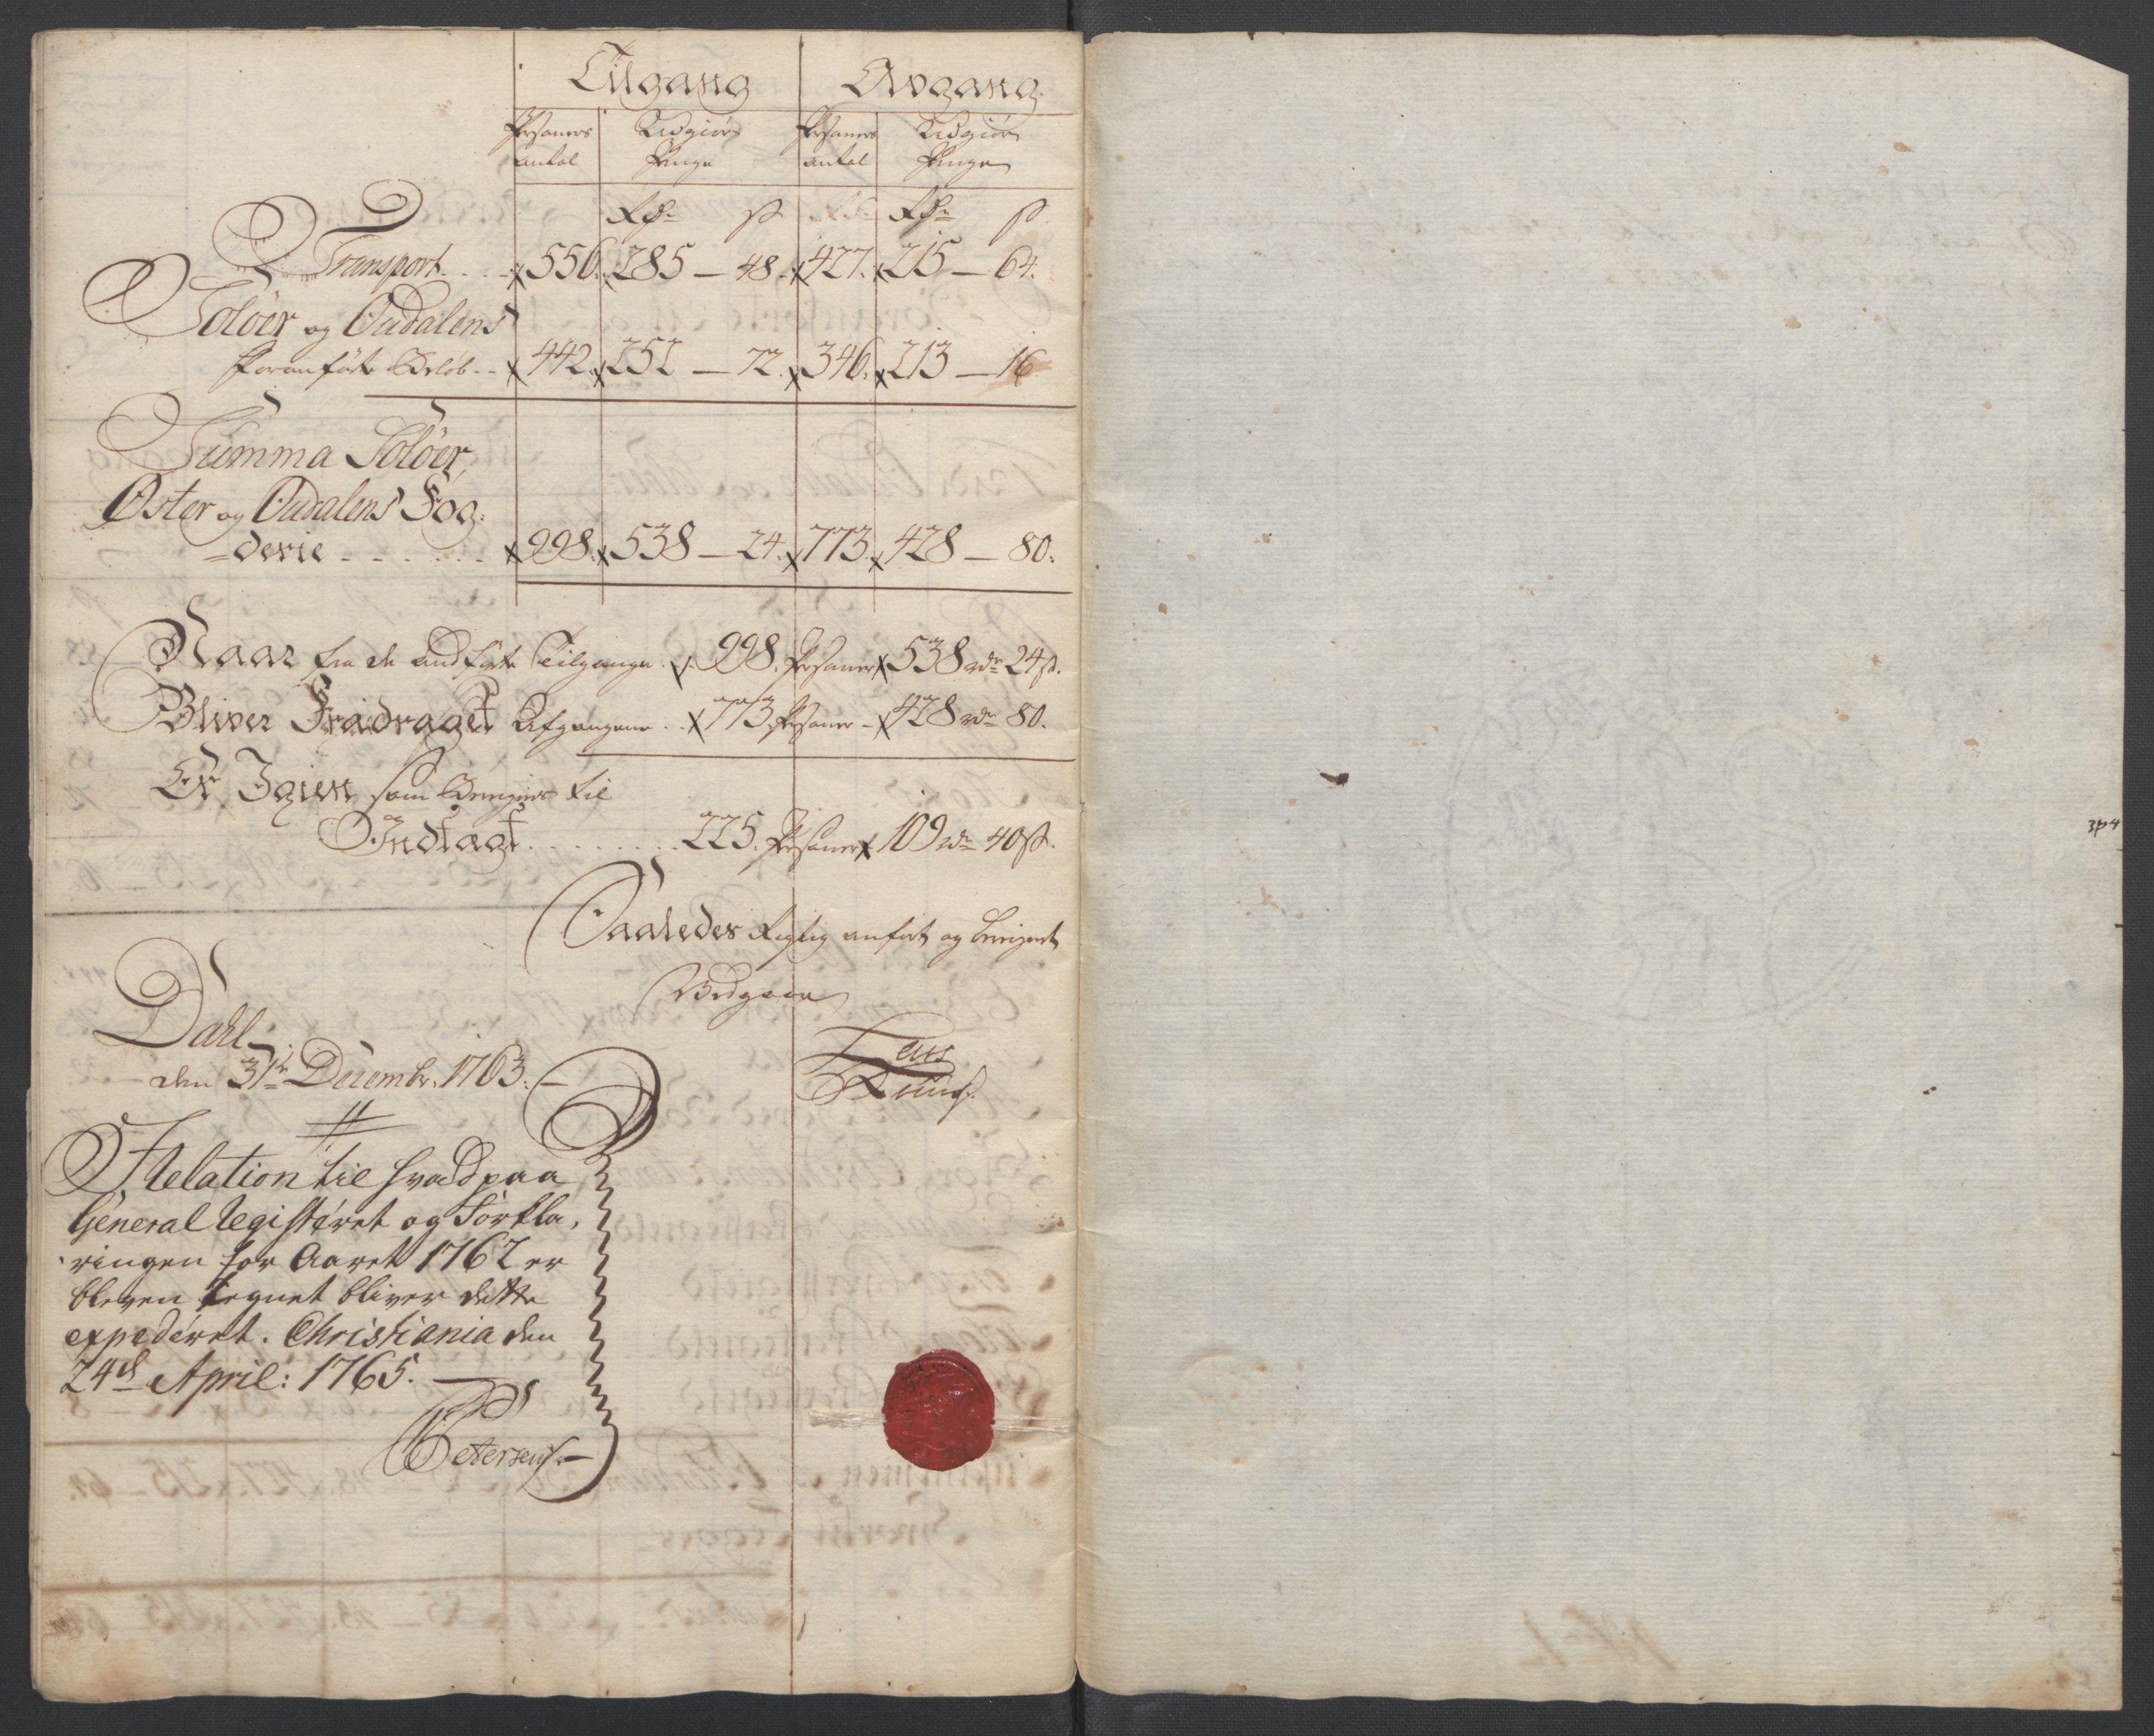 Tilgang Avgang
Persohners Udgiør Persohners Udgiør
antal Penge antal Penge
Rdr ß Rdr ß
Transport . . . 556. 285 – 48. 427. 215 – 64.
Soløer og Oudalens
foranførte Beløb . . 442. 252 – 72. 346. 213 – 16
Summa Soløer,
Øster og Oudalens Fog:
=derie . . . . . . 998. 538 – 24. 773. 428 – 80.
Naar fra de andførte Tilgange . 998. Persohner 538 rdr 24 ß.
Bliver Fradraget Afgangene . . 773 Persohner – 428 rdr 80.
Er Igien som Beregnes til
Indtægt . . . . . . . . . 225. Persohner 109 rdr 40 ß.
Saaledes Rigtig anført og beregnet
Vedgaaer
Dahl
den 31te Decembr. 1763. –
I Relation til hvad paa
General Registeret og Forkla,
ringen for Aaret 1762 er
bleven tegnet bliver dette
expederet. Christiania den
24de April: 1765. —
Petersen
3P4